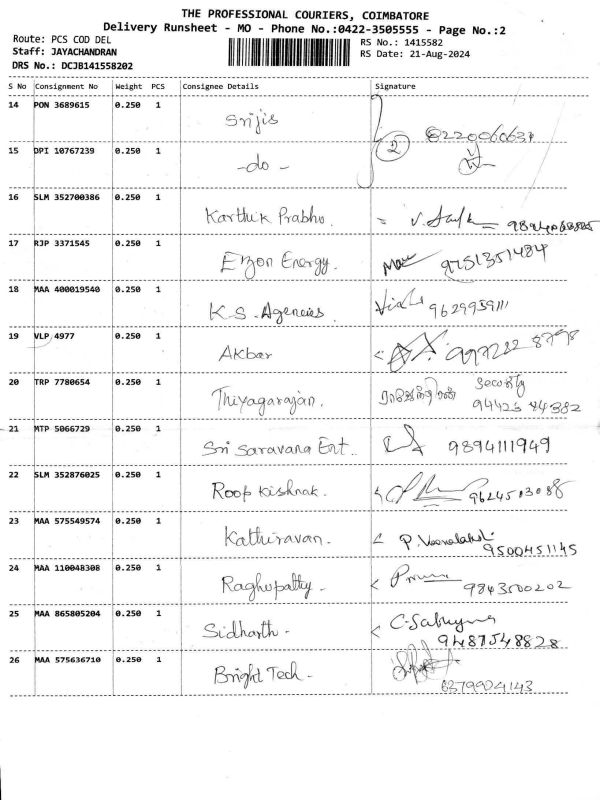 THE PROFESSIONAL COURIERS, COIMBATORE
Delivery Runsheet - MO - Phone No.:0422-3505555 - Page No.:2
Route: PCS COD DEL
Staff: JAYACHANDRAN
DRS No.: DCJB141558202
RS No.: 1415582
RS Date: 21-Aug-2024
S No Consignment No Weight PCS Consignee Details Signature
14 PON 3689615 0.250 1 Srijis
15 DPI 10767239 0.250 1 -do- 2
16 SLM 352700386 0.250 1 Karthik Prabhu.
17 RJP 3371545 0.250 1 Energy. 9751351484
18 MAA 400019540 0.250 1 K.S. Agencies. 9629939111
19 VLP 4977 0.250 1 Akbar
20 TRP 7780654 0.250 1 Thiyagarajan. Security
94423 84382
21 MTP 5066729 0.250 1 Sri Saravana Ent.. 9894111949
22 SLM 352876025 0.250 1
23 MAA 575549574 0.250 1 Kathiravan.
9500451145
24 MAA 110048308 0.250 1 Raghupathy. 9843500202
25 MAA 865805204 0.250 1 Sidharth -
9487548828
26 MAA 575636710 0.250 1 Bright Tech -
6379904143